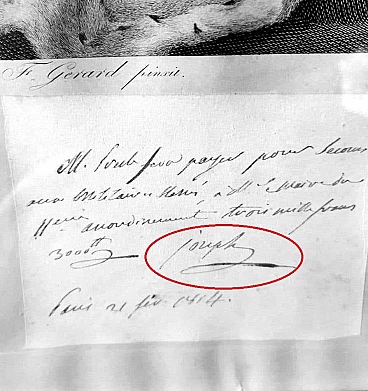 F. Gerard pinxit.
M. fera payer pour Secours
aux Militaires blessés, à Mr le Maire du
11eme arrondissement trois mille francs
3000tt
joseph
Paris 21 fév. 1814.